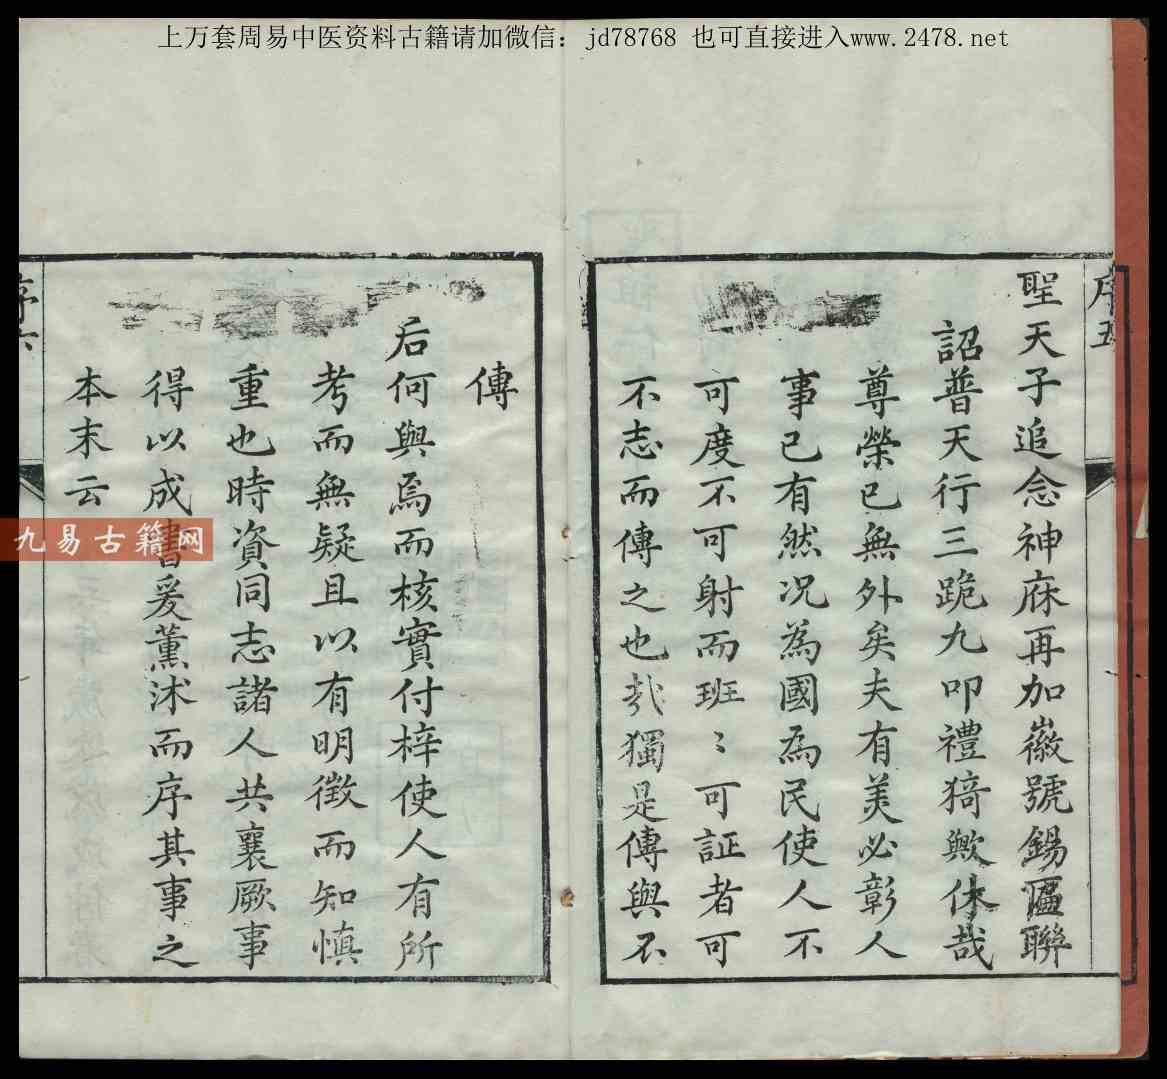 上万套周易中医资料古籍请加微信：jd78768 也可直接进入www.2478.net
序五
聖天子追念神庥再加徽號錫匾聯
詔普天行三跪九叩禮猗歟休哉
尊榮已無外矣夫有美必彰人
事已有然况為國為民使人不
可度不可射而班〻可証者可
不志而傳之也㢤獨是傳與不
傳
后何與焉而核實付梓使人有所
考而無疑且以有明徵而知慎
重也時資同志諸人共襄厥事
得以成書爰薰沭而序其事之
本末云
序六
九易古籍网